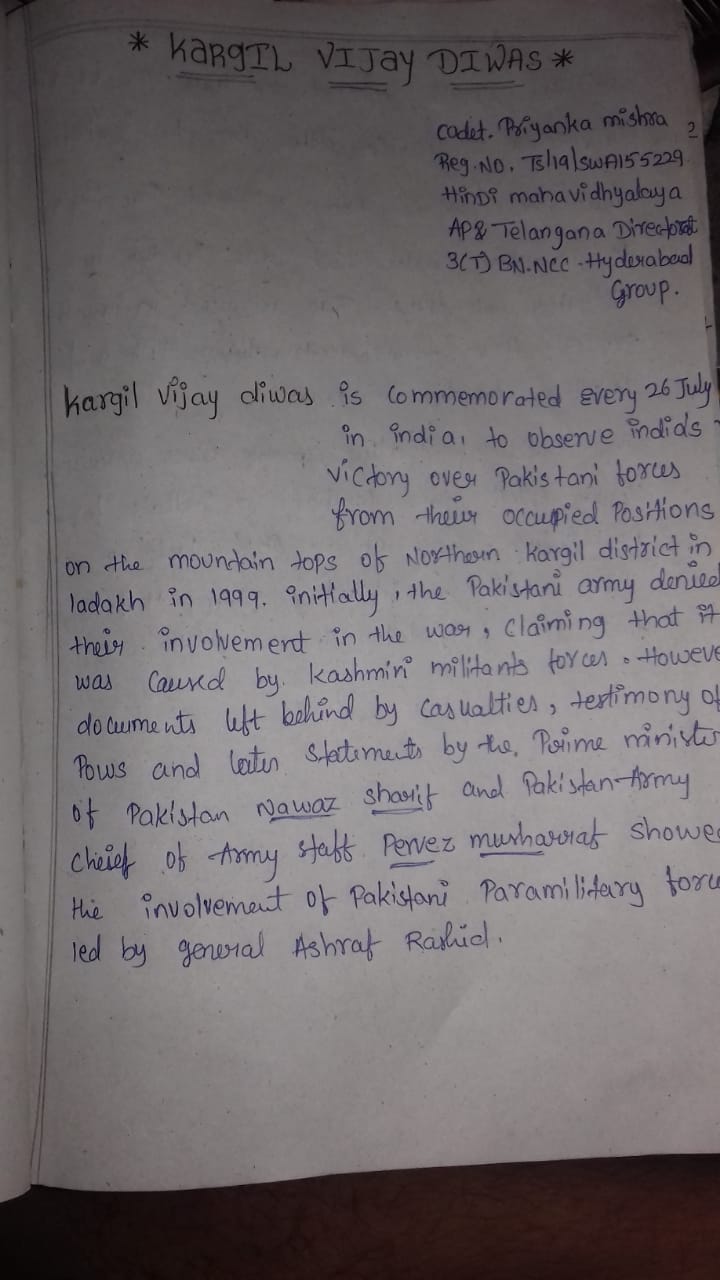 * KARGIL VIJAY DIWAS *
Cadet. Priyanka mishra
Reg.NO. TS/19/SWA155229
HinDi mahavidhyalaya
AP& Telangana Directorat
3(T) BN.NCC -Hyderabad
Group.
kargil vijay diwas is commemorated every 26 July
in india, to observe india's
victory over Pakistani forces
from their occupied Positions
on the mountain tops of Northern kargil district in
ladakh in 1999. initially, the Pakistani army denied
their involvement in the war, claiming that it
was caused by kashmiri militants forces. Howeve
documents left behind by casualties, testimony of
Pows and later statements by the, Prime ministe
of Pakistan Nawaz sharif and Pakistan-Army
cheief of Army staff Pervez musharraf showe
the involvement of Pakistani Paramilitary forc
led by general Ashraf Rashid.